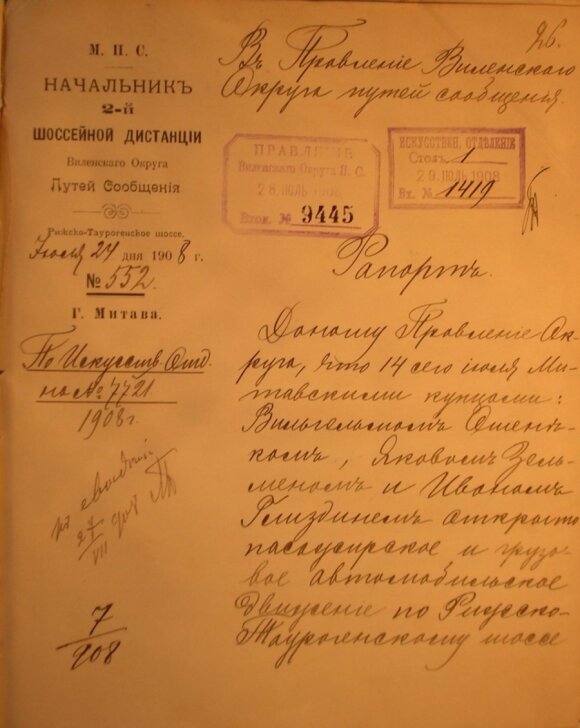 26.
М. П. С.
НАЧАЛЬНИКЪ
2-й
ШОССЕЙНОЙ ДИСТАНЦІИ
Виленскаго Округа
Путей Сообщенія
Рижско-Таурогенское шоссе.
Іюля 24 дня 1908 г.
№ 552.
Г. Митава.
По Искусств. Отд.
на № 7721
1908 г.
27
VII
7
908
Въ Правленіе Виленскаго
Округа путей сообщенія.
ПРАВЛЕНІЕ
Виленскаго Округа П. С.
28 ІЮЛЬ 1908
Вход. № 9445
ИСКУССТВЕН. ОТДѢЛЕНІЕ
Столъ 1
29 ІЮЛЬ 1908
Вх. № 1419
Рапортъ.
Доношу Правленію Ок-
руга, что 14 сего іюля Ми-
тавскими купцами:
Вильгельмомъ
Яковомъ Зель-
меномъ и Иваномъ
Глиздинемъ открыто
пассажирское и грузо-
вое автомобильское
движеніе по Рижско-
Таурогенскому шоссе